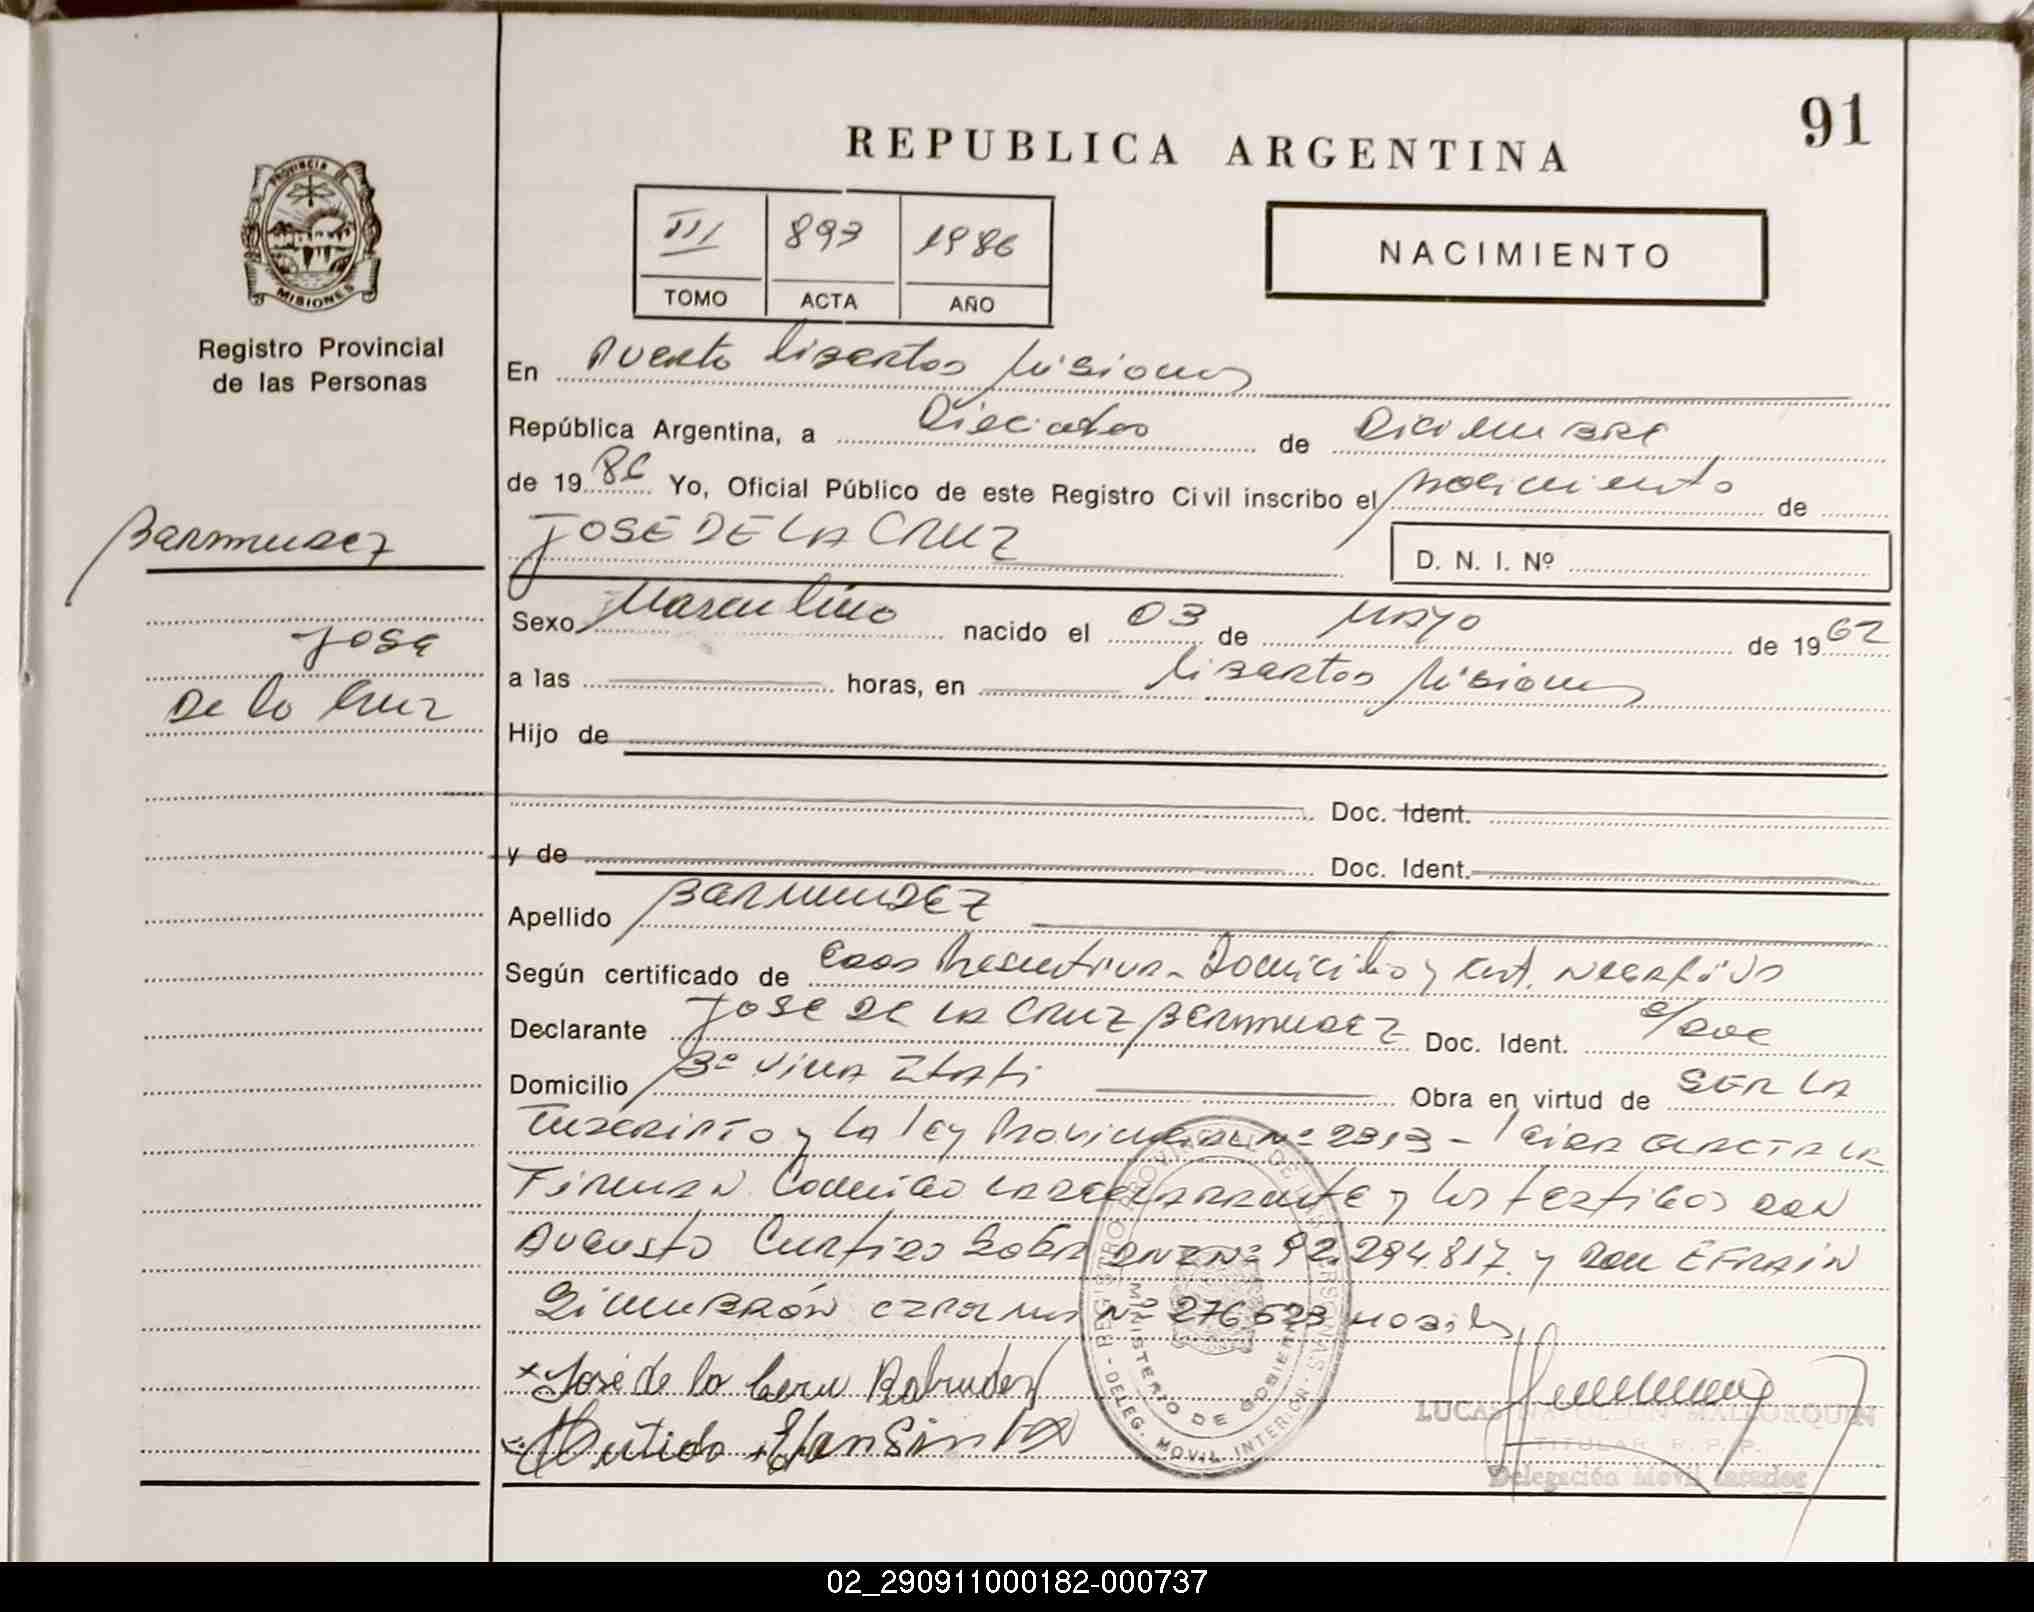 91
REPUBLICA ARGENTINA
PROVINCIA DE
MISIONES
Registro Provincial
de las Personas
III 893 1986
TOMO ACTA AÑO
NACIMIENTO
En Puerto Libertad Misiones
República Argentina, a Dieciocho de Diciembre
de 1986 Yo, Oficial Público de este Registro Civil inscribo el nacimiento de
JOSE DE LA CRUZ
D. N. I. Nº
Barmudez
Jose
De la Cruz
Sexo Masculino nacido el 03 de Mayo de 1962
a las horas, en Libertad Misiones
Hijo de
Doc. Ident.
y de Doc. Ident.
Apellido BARMUDEZ
Según certificado de Edad Presuntiva - Domicilio y Cert. Negativo
Declarante JOSE DE LA CRUZ BERMUDEZ Doc. Ident.
Domicilio Bº Villa Itati Obra en virtud de SER LA
Inscripto y La Ley Provincial Nº 2313 - Leida el acta la
Firman Conmigo la declarante y los testigos DON
Augusto DNI Nº 92.294.817 y Don EFRAIN
Nº 276.523
José de la
REGISTRO PROVINCIAL DE LAS PERSONAS
MINISTERIO DE GOBIERNO
DELEG. MOVIL INTERIOR
LUCAS NAPOLEON MALLORQUIN
TITULAR R. P. P.
Delegación Movil
02_290911000182-000737